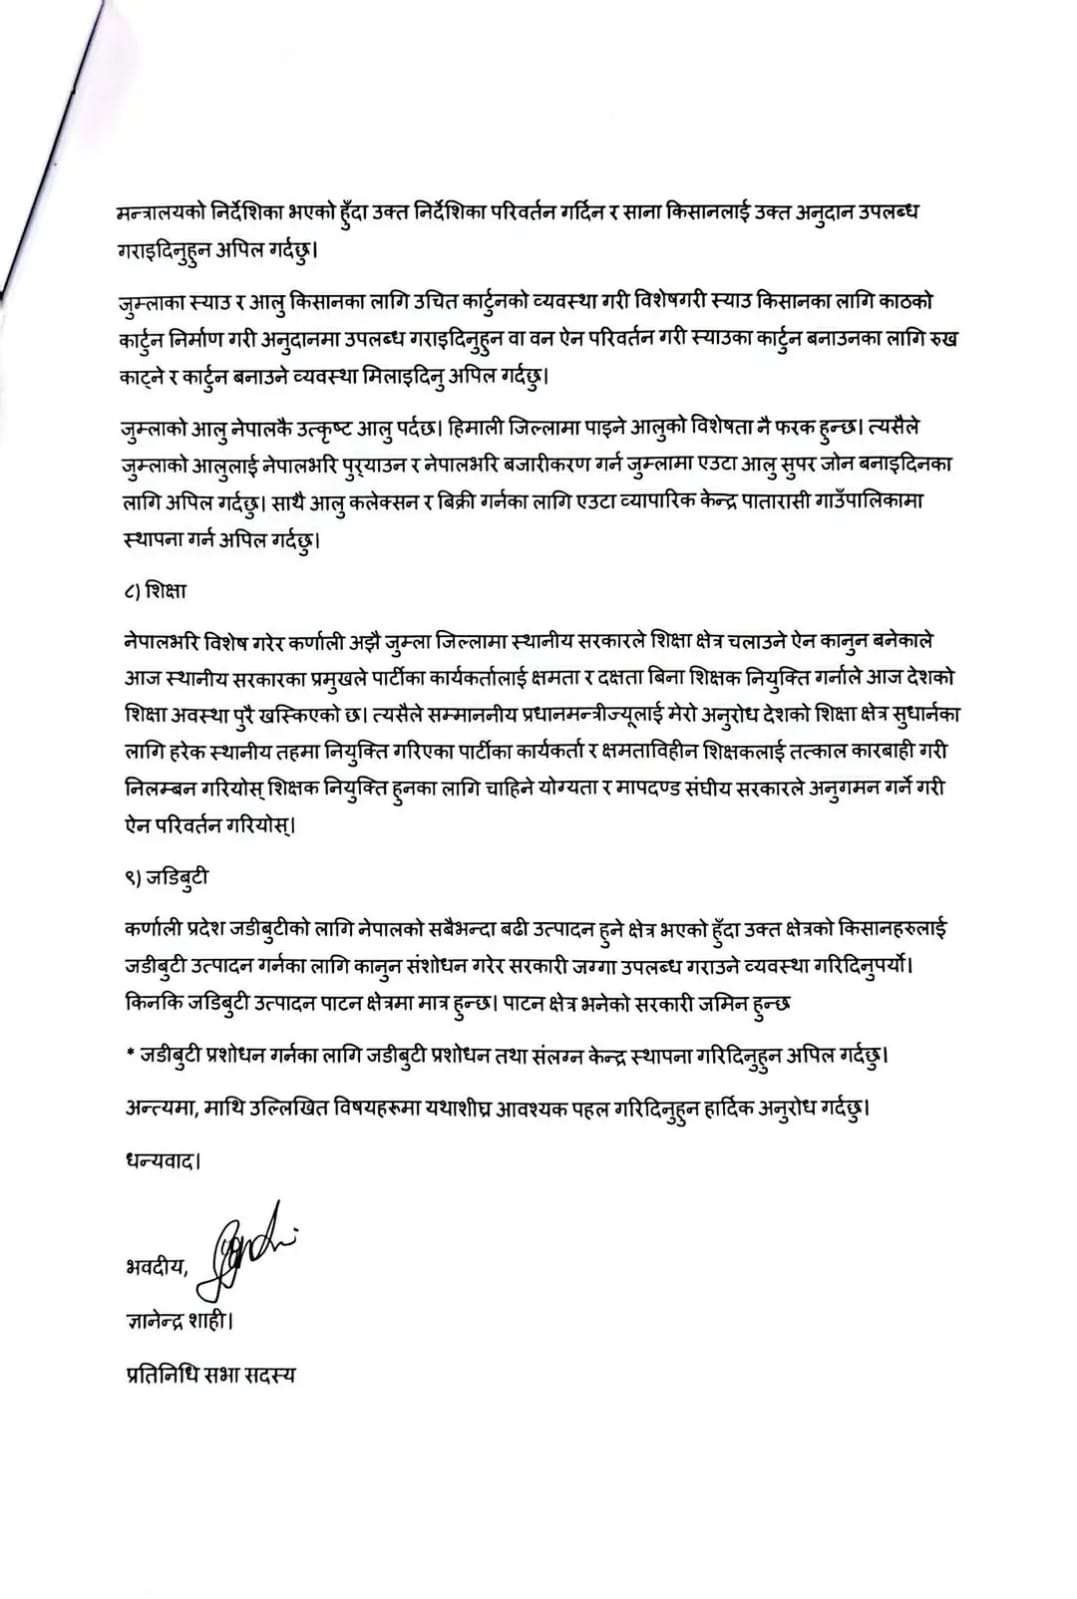 मन्त्रालयको निर्देशिका भएको हुँदा उक्त निर्देशिका परिवर्तन गर्दिन र साना किसानलाई उक्त अनुदान उपलब्ध
गराइदिनुहुन अपिल गर्दछु।
जुम्लाका स्याउ र आलु किसानका लागि उचित कार्टुनको व्यवस्था गरी विशेषगरी स्याउ किसानका लागि काठको
कार्टुन निर्माण गरी अनुदानमा उपलब्ध गराइदिनुहुन वा वन ऐन परिवर्तन गरी स्याउका कार्टुन बनाउनका लागि रुख
काट्ने र कार्टुन बनाउने व्यवस्था मिलाइदिनु अपिल गर्दछु।
जुम्लाको आलु नेपालकै उत्कृष्ट आलु पर्दछ। हिमाली जिल्लामा पाइने आलुको विशेषता नै फरक हुन्छ। त्यसैले
जुम्लाको आलुलाई नेपालभरि पुर्‍याउन र नेपालभरि बजारीकरण गर्न जुम्लामा एउटा आलु सुपर जोन बनाइदिनका
लागि अपिल गर्दछु। साथै आलु कलेक्सन र बिक्री गर्नका लागि एउटा व्यापारिक केन्द्र पातारासी गाउँपालिकामा
स्थापना गर्न अपिल गर्दछु।
८) शिक्षा
नेपालभरि विशेष गरेर कर्णाली अझै जुम्ला जिल्लामा स्थानीय सरकारले शिक्षा क्षेत्र चलाउने ऐन कानुन बनेकाले
आज स्थानीय सरकारका प्रमुखले पार्टीका कार्यकर्तालाई क्षमता र दक्षता बिना शिक्षक नियुक्ति गर्नाले आज देशको
शिक्षा अवस्था पुरै खस्किएको छ। त्यसैले सम्माननीय प्रधानमन्त्रीज्यूलाई मेरो अनुरोध देशको शिक्षा क्षेत्र सुधार्नका
लागि हरेक स्थानीय तहमा नियुक्ति गरिएका पार्टीका कार्यकर्ता र क्षमताविहीन शिक्षकलाई तत्काल कारबाही गरी
निलम्बन गरियोस् शिक्षक नियुक्ति हुनका लागि चाहिने योग्यता र मापदण्ड संघीय सरकारले अनुगमन गर्ने गरी
ऐन परिवर्तन गरियोस्।
९) जडिबुटी
कर्णाली प्रदेश जडीबुटीको लागि नेपालको सबैभन्दा बढी उत्पादन हुने क्षेत्र भएको हुँदा उक्त क्षेत्रको किसानहरुलाई
जडीबुटी उत्पादन गर्नका लागि कानुन संशोधन गरेर सरकारी जग्गा उपलब्ध गराउने व्यवस्था गरिदिनुपर्यो।
किनकि जडिबुटी उत्पादन पाटन क्षेत्रमा मात्र हुन्छ। पाटन क्षेत्र भनेको सरकारी जमिन हुन्छ
* जडीबुटी प्रशोधन गर्नका लागि जडीबुटी प्रशोधन तथा संलग्न केन्द्र स्थापना गरिदिनुहुन अपिल गर्दछु।
अन्त्यमा, माथि उल्लिखित विषयहरूमा यथाशीघ्र आवश्यक पहल गरिदिनुहुन हार्दिक अनुरोध गर्दछु।
धन्यवाद।
भवदीय,
ज्ञानेन्द्र शाही।
प्रतिनिधि सभा सदस्य